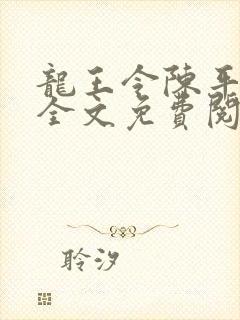 龍王令陳平
全文免費閱
聆汐